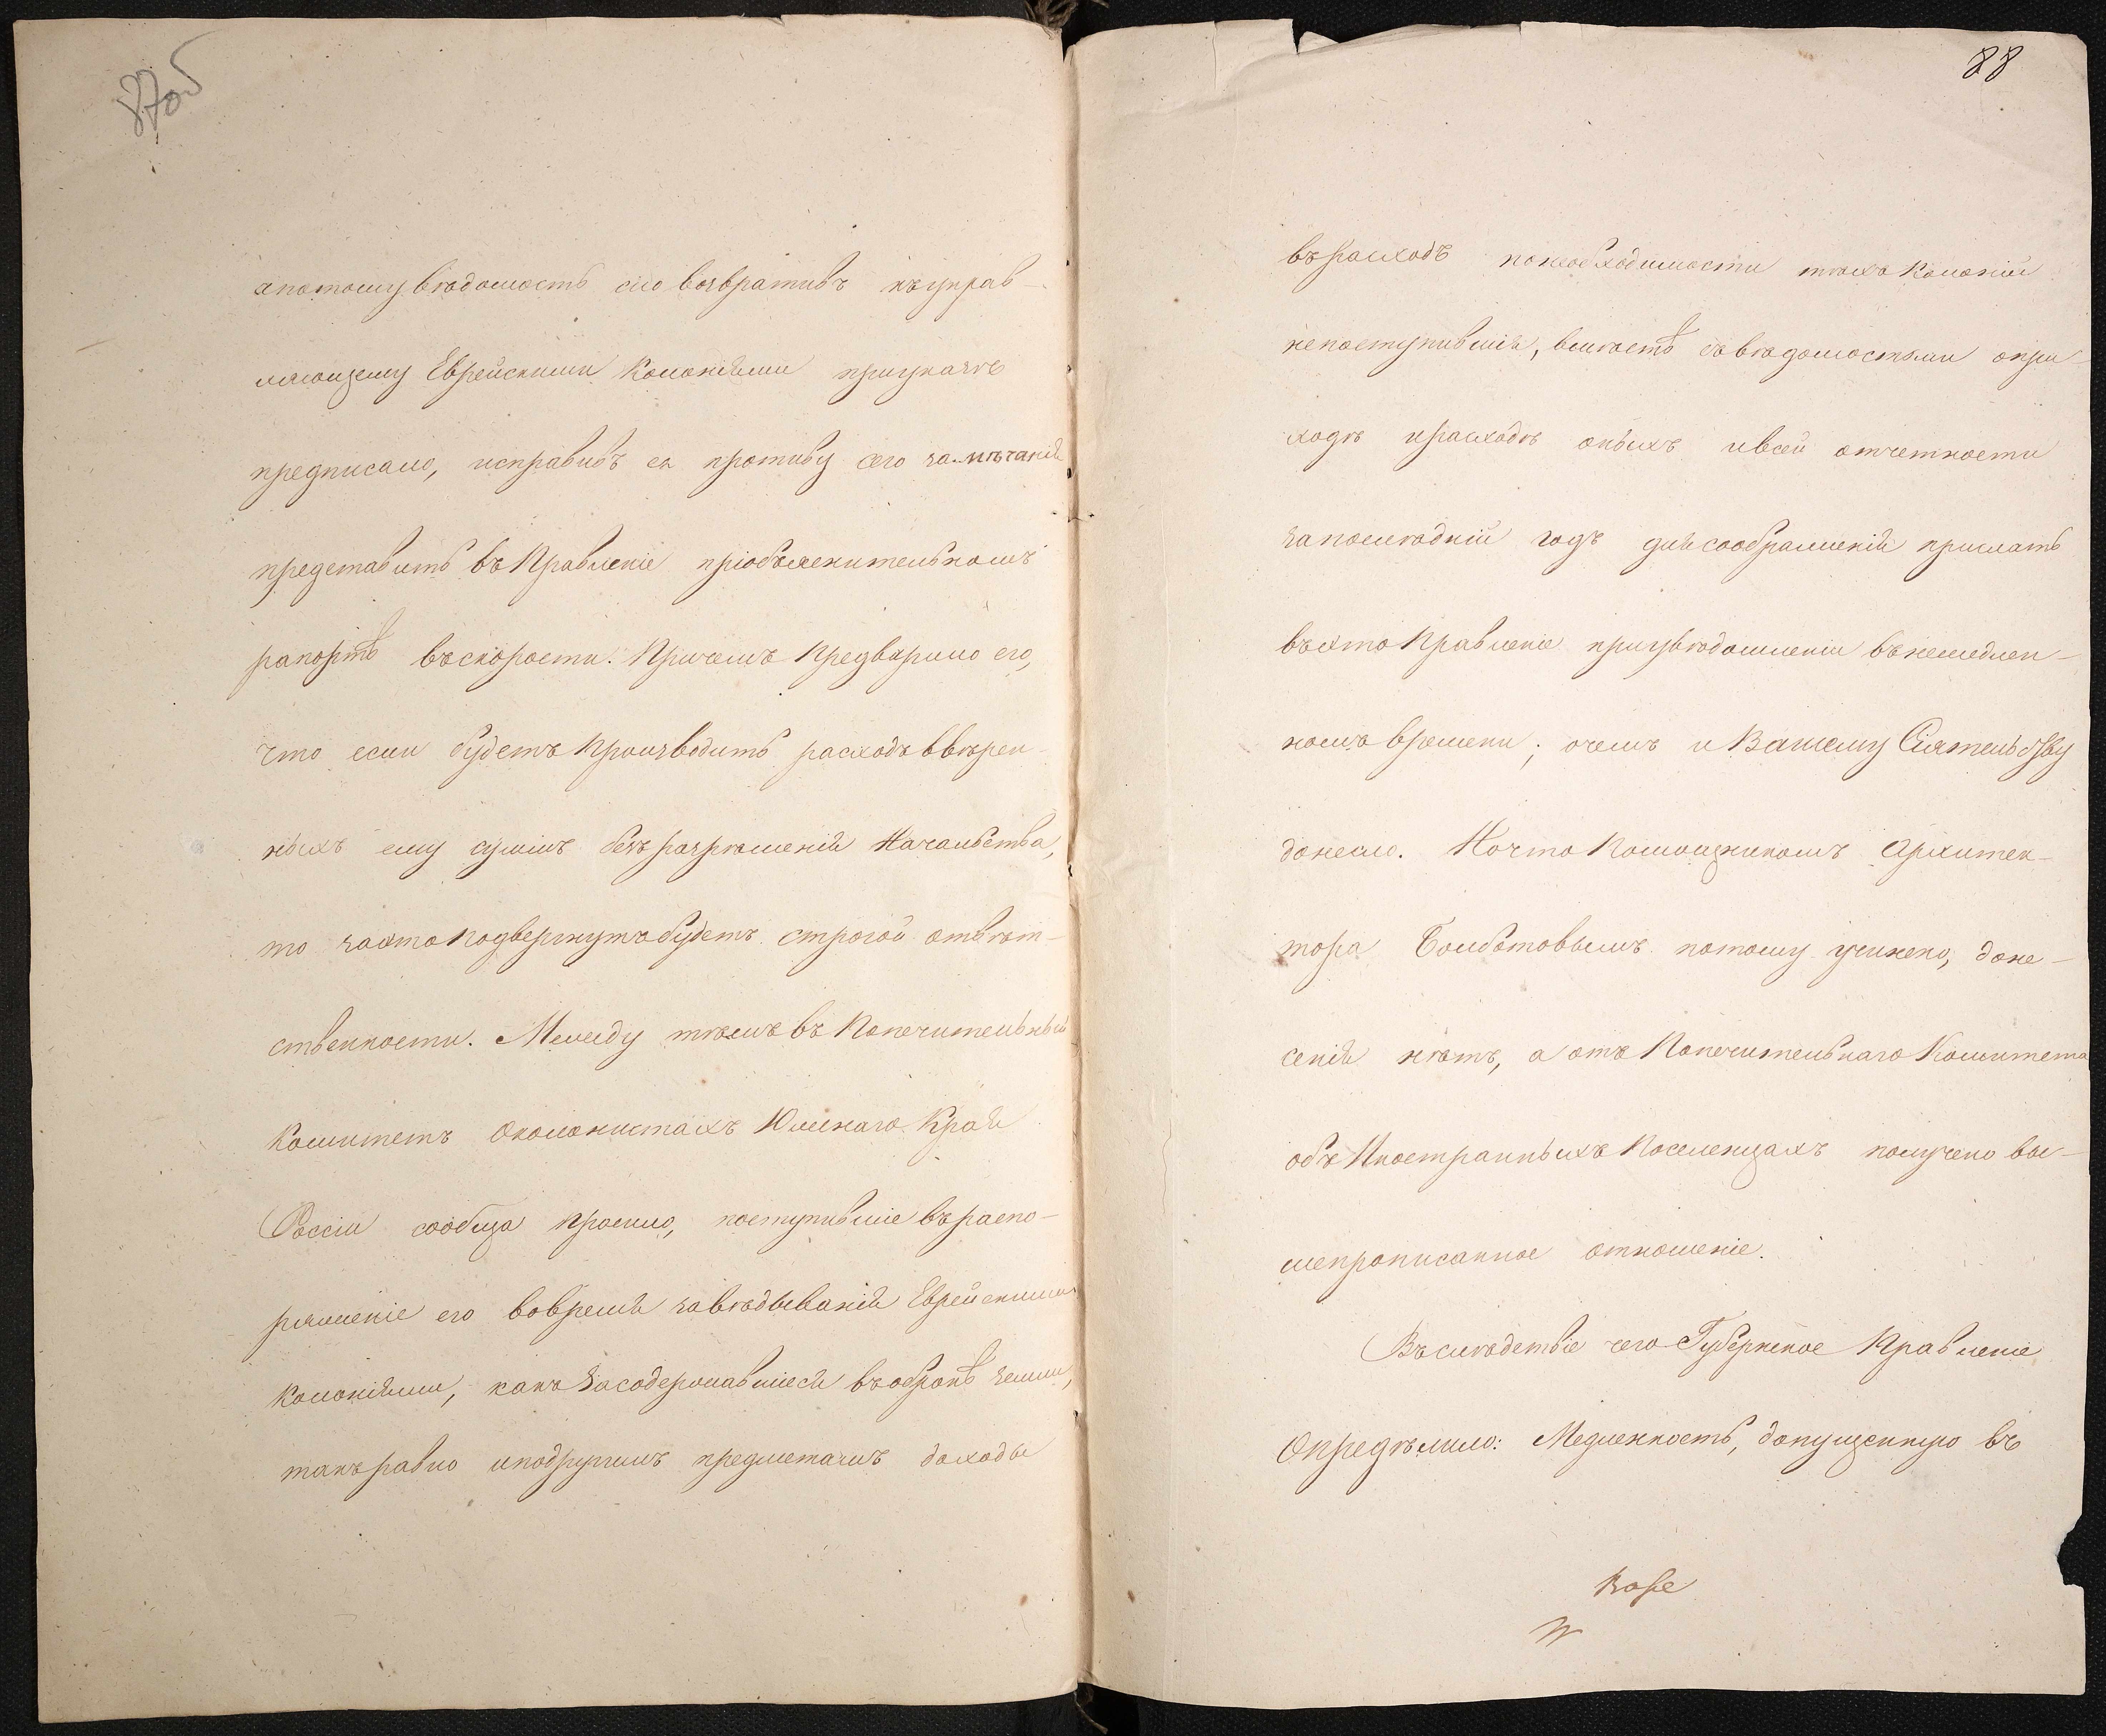 87об
а потому вѣдомость сію возвративъ къ управ-
ляющему Еврейскими Колоніями при указѣ
предписало, исправивъ ея противу сего замѣчанія
представить въ Правленіе при объяснительномъ
рапортѣ въ скорости. Причемъ предварило его,
что если будетъ производить расходъ ввѣрен-
ныхъ ему суммъ безъ разрѣшенія Начальства,
то за это подвергнутъ будетъ строгой отвѣт-
ственности. Между тѣмъ въ Попечительный
Комитетъ о колонистахъ Южнаго Края
Россіи сообща просило, поступившіе въ распо-
ряженіе его во время завѣдыванія Еврейскими
колоніями, какъ за содержавшіеся въ оброкѣ земли,
такъ равно и по другимъ предметамъ доходы
88
въ расходъ по необходимости тѣхъ Колоній
не поступившія, вмѣстѣ съ вѣдомостями о при-
ходѣ и расходѣ оныхъ и всей отчетности
за послѣдній годъ для соображенія прислать
въ это Правленіе при увѣдомленіи въ немедлен-
номъ времени; о чемъ и Вашему Сіятельству
донесло. Но что Помощникомъ Архитек-
тора по тому учинено, доне-
сенія нѣтъ, а отъ Попечительнаго Комитета
объ Иностранныхъ Поселенцахъ получено вы-
шепрописанное отношеніе.
Въ слѣдствіе чего Губернское Правленіе
Опредѣлило: Медленность, допущенную въ